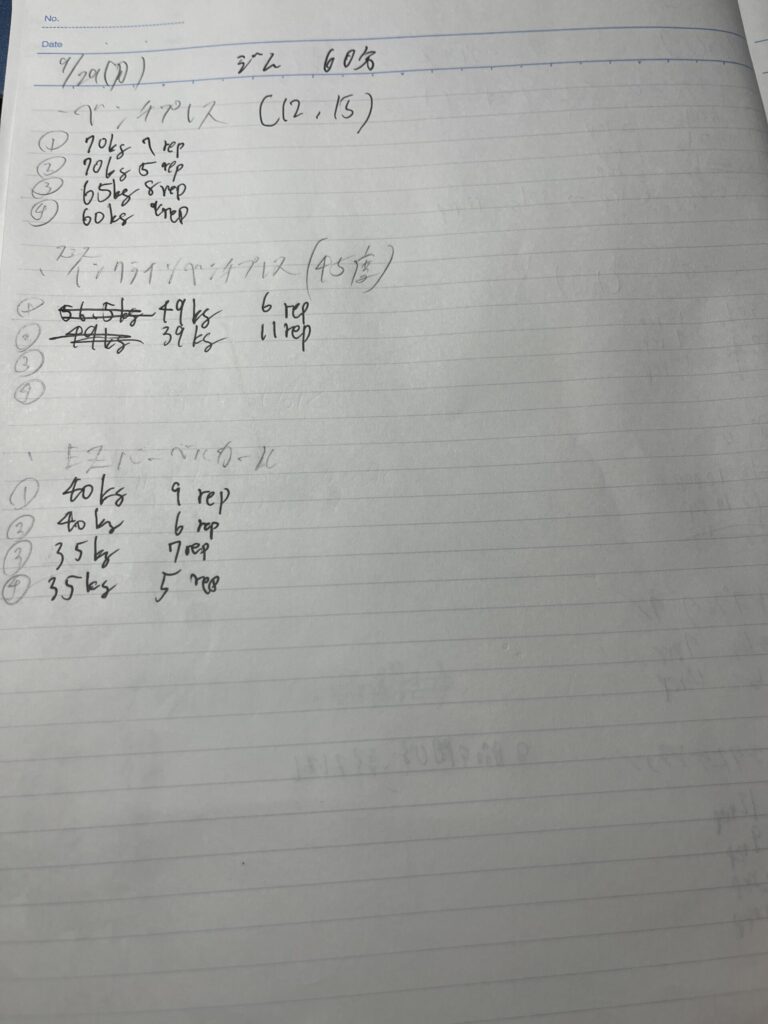 No.
Date
9/29(月) ジム 60分
・ベンチプレス (12, 15)
① 70kg 7 rep
② 70kg 5 rep
③ 65kg 8 rep
④ 60kg rep
・インクラインベンチプレス (45度)
① 56.5kg 49kg 6 rep
② 49kg 39kg 11 rep
③
④
・EZバーベルカール
① 40kg 9 rep
② 40kg 6 rep
③ 35kg 7 rep
④ 35kg 5 rep